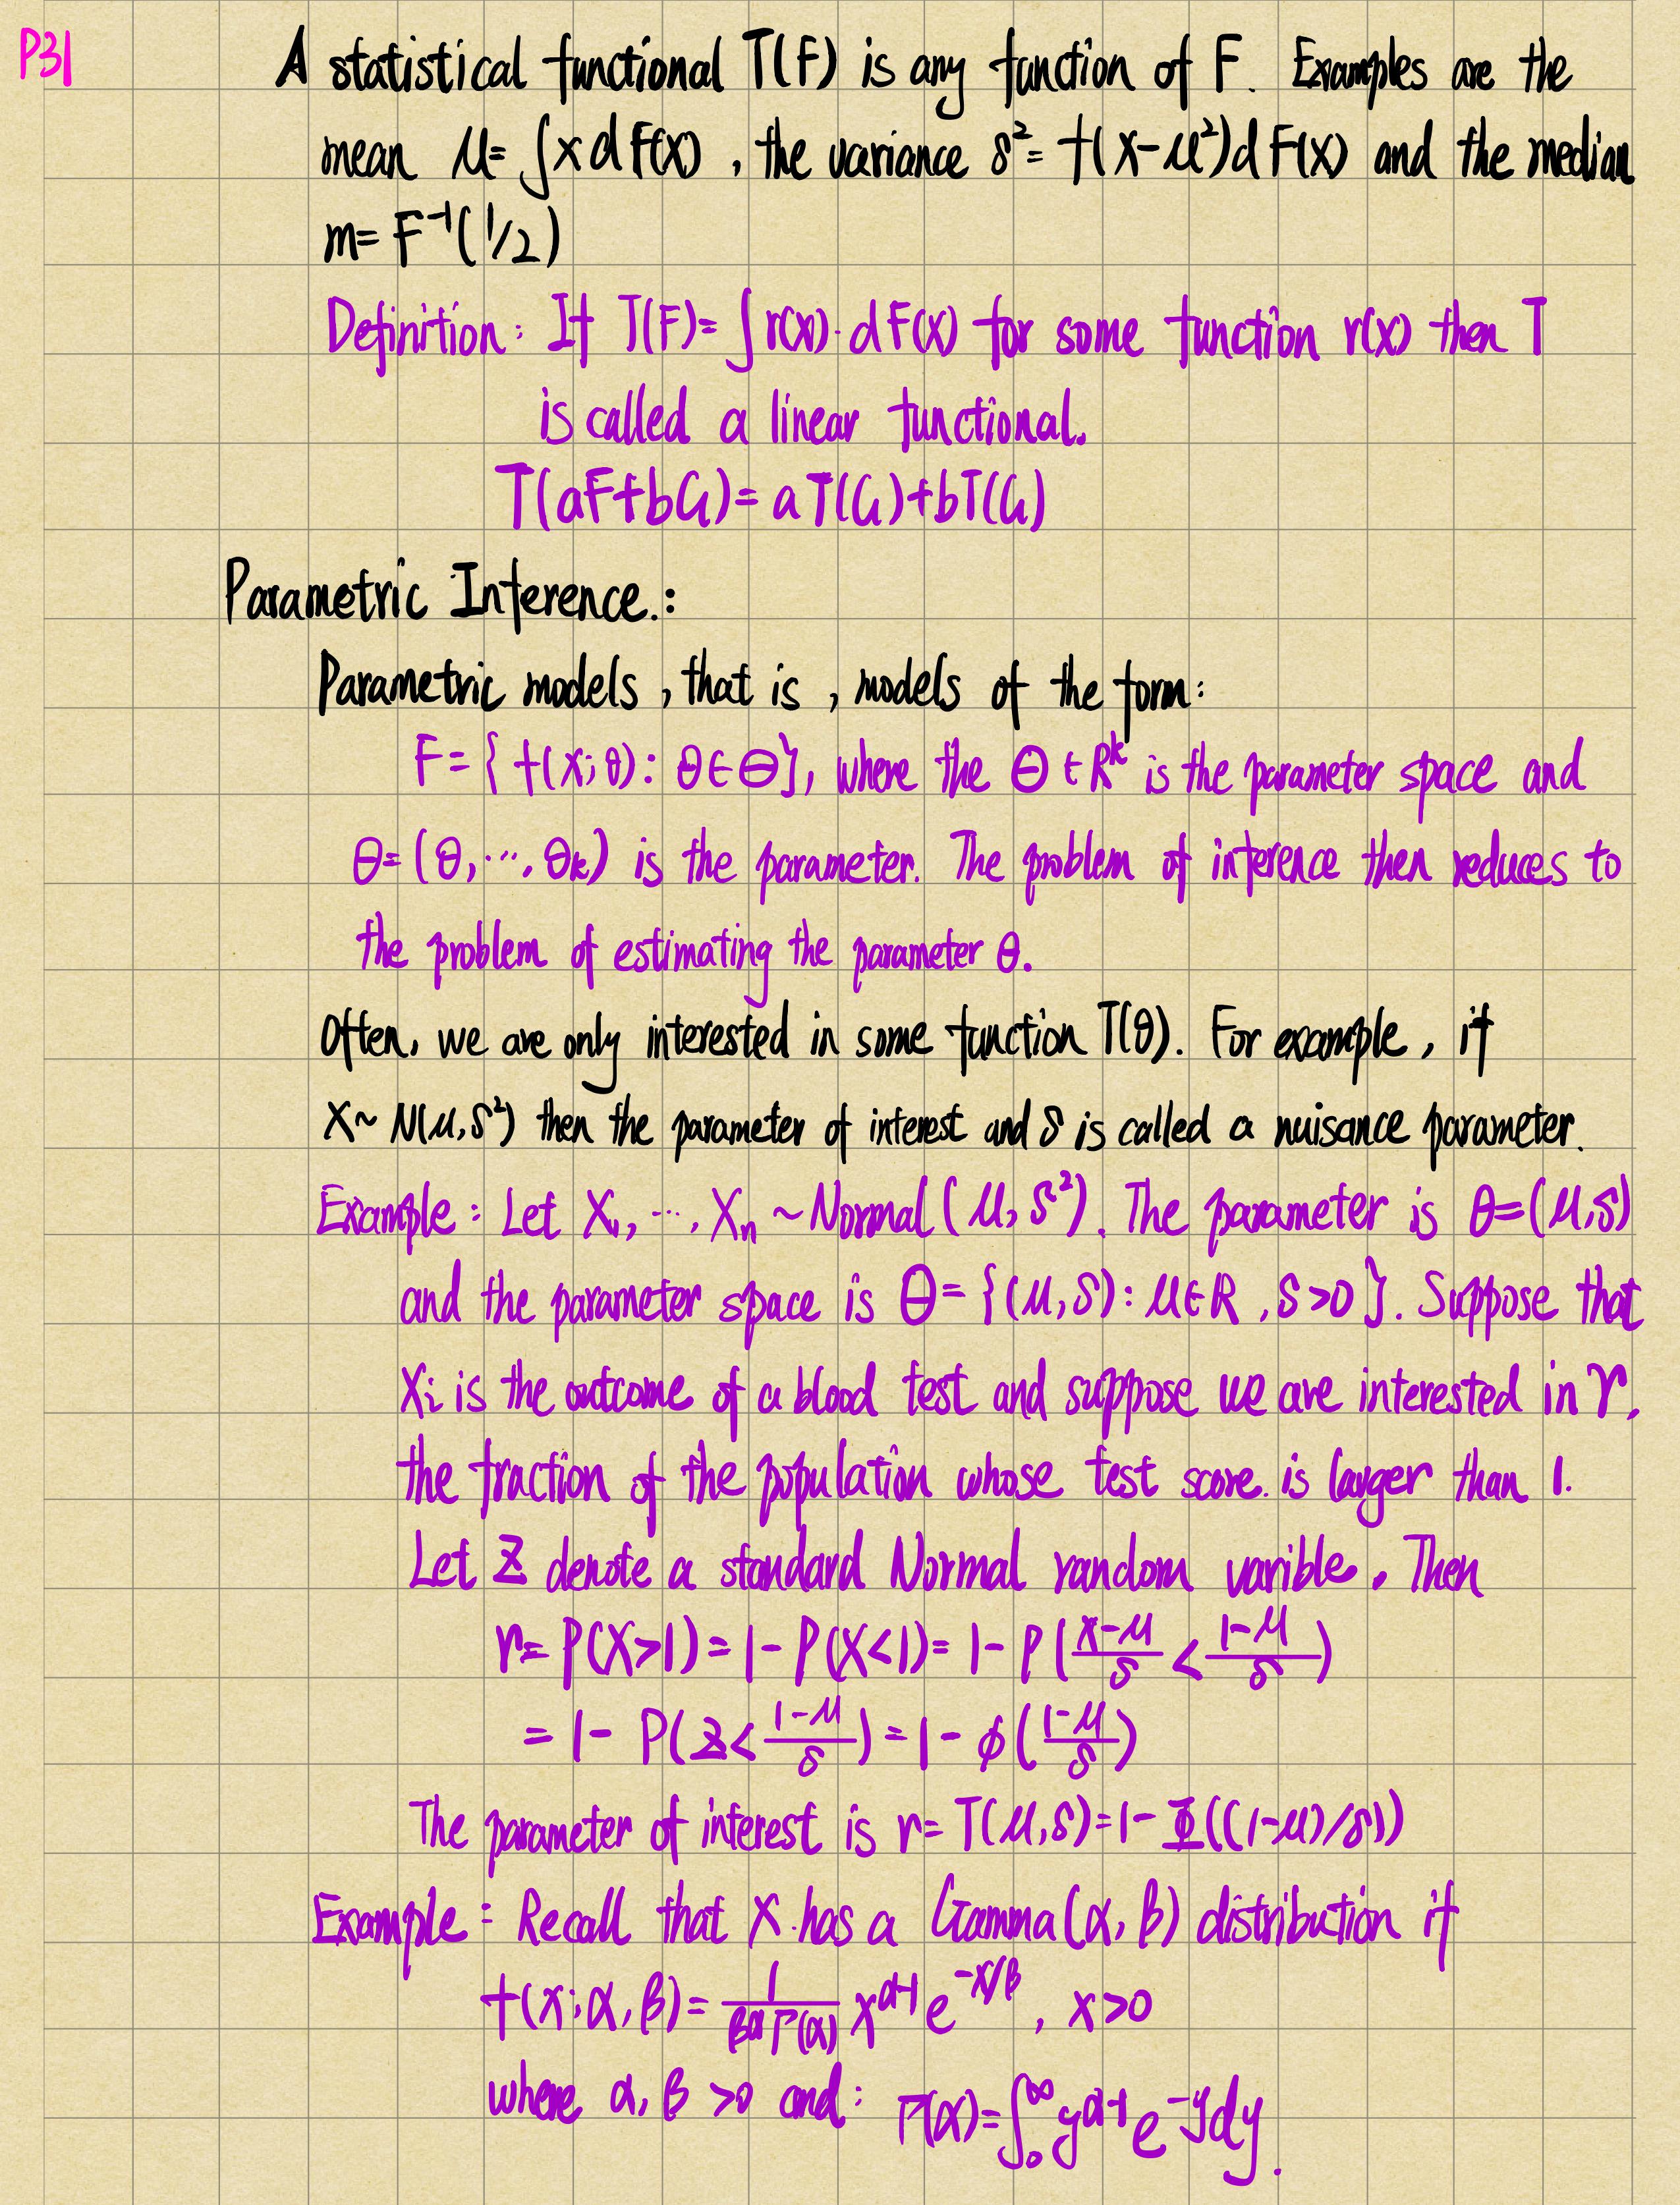 P31
A statistical functional T(F) is any function of F. Examples are the
mean μ= ∫x d F(x) , the variance δ²= f(x-μ²)d F(x) and the median
m= F⁻¹(1/2)
Definition: If T(F)= ∫r(x)·d F(x) for some function r(x) then T
is called a linear functional.
T(aF+bG)= a T(G)+bT(G)
Parametric Inference.:
Parametric models , that is , models of the form:
F= { f(x;θ): θ∈Θ}, where the Θ ∈ Rᵏ is the parameter space and
θ=(θ,⋯, θₖ) is the parameter. The problem of inference then reduces to
the problem of estimating the parameter θ.
Often, we are only interested in some function T(θ). For example , if
X~ N(μ,δ²) then the parameter of interest and δ is called a nuisance parameter.
Example : Let X₁, ⋯, Xₙ ~Normal( μ, δ²). The parameter is θ=(μ,δ)
and the parameter space is Θ= {(μ,δ): μ∈R ,δ>0 }. Suppose that
Xi is the outcome of a blood test and suppose we are interested in r,
the fraction of the population whose test score. is larger than 1.
Let Z denote a standard Normal random varible. Then
r= P(X>1)= 1- P(X<1)= 1- P((x-μ)/δ < (1-μ)/δ)
= 1- P(Z< (1-μ)/δ)=1- ϕ((1-μ)/δ)
The parameter of interest is r= T(μ,δ)=1- Φ(((1-μ)/δ))
Example : Recall that X has a Gamma(α, β) distribution if
f(x;α, β)= 1/(βαΓ(α)) x^(α-1) e^(-x/β) , x>0
where α, β >0 and: Γ(α)=∫₀^∞ y^(α-1) e^(-y) dy.